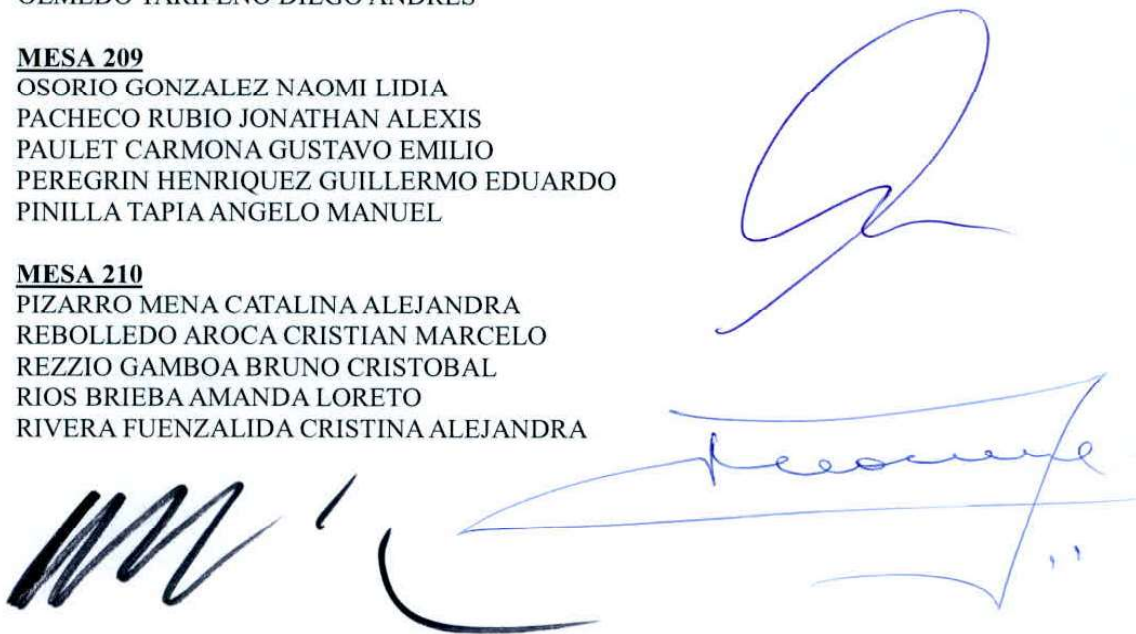 MESA 209
OSORIO GONZALEZ NAOMI LIDIA
PACHECO RUBIO JONATHAN ALEXIS
PAULET CARMONA GUSTAVO EMILIO
PEREGRIN HENRIQUEZ GUILLERMO EDUARDO
PINILLA TAPIA ANGELO MANUEL
MESA 210
PIZARRO MENA CATALINA ALEJANDRA
REBOLLEDO AROCA CRISTIAN MARCELO
REZZIO GAMBOA BRUNO CRISTOBAL
RIOS BRIEBA AMANDA LORETO
RIVERA FUENZALIDA CRISTINA ALEJANDRA